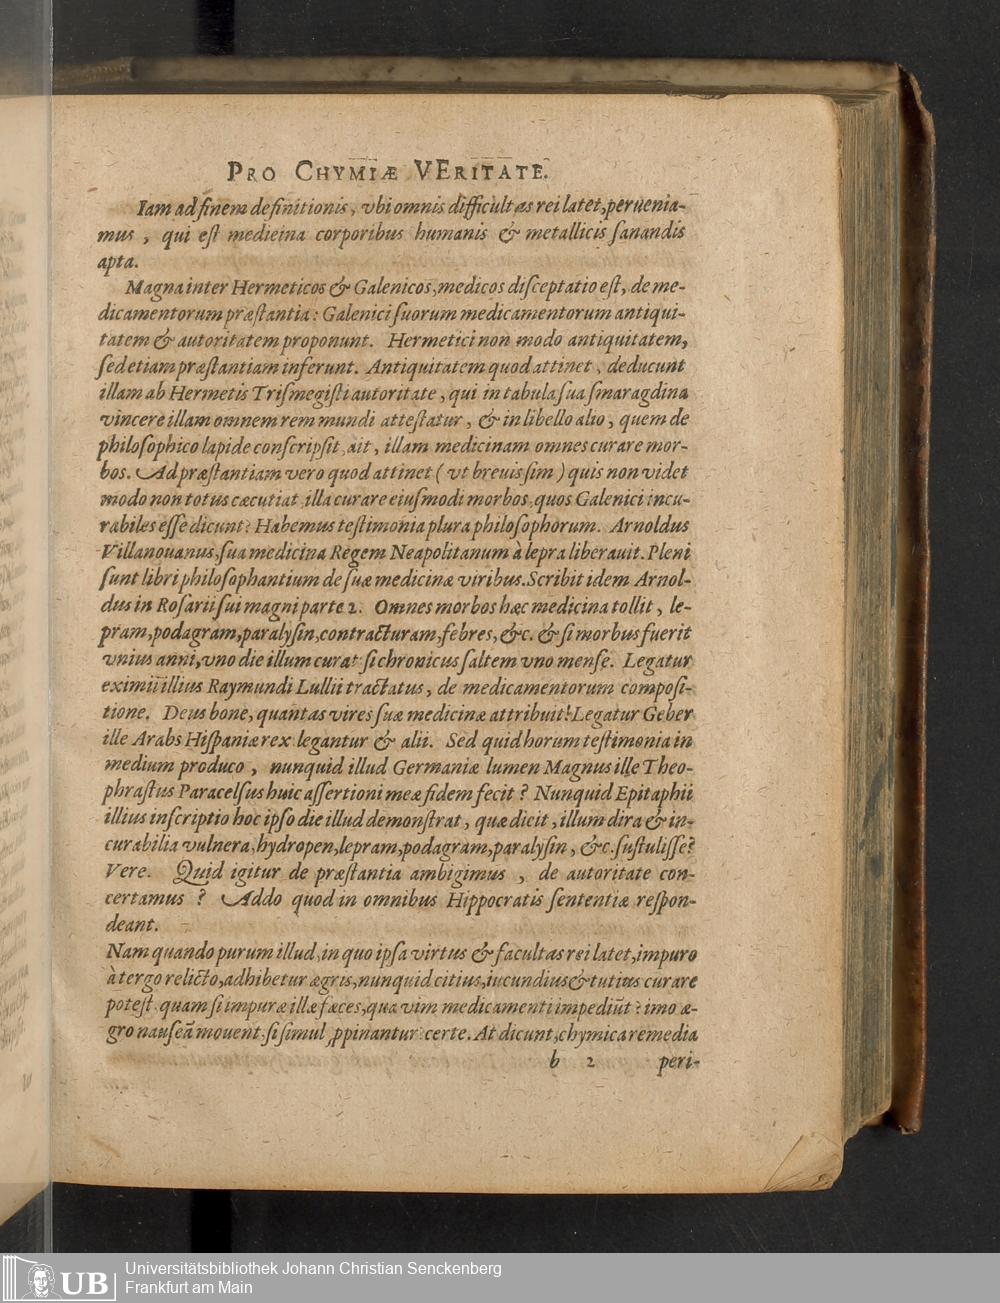 PRO CHYMIÆ VERITATE.
Iam ad finem definitionis, vbi omnis difficultas rei latet, peruenia-
mus, qui est medicina corporibus humanis & metallicis sanandis
apta.
Magna inter Hermeticos & Galenicos, medicos disceptatio est, de me-
dicamentorum præstantia: Galenici suorum medicamentorum antiqui-
tatem & autoritatem proponunt. Hermetici non modo antiquitatem,
sed etiam præstantiam inferunt. Antiquitatem quod attinet, deducunt
illam ab Hermetis Trismegisti autoritate, qui in tabula sua smaragdina
vincere illam omnem rem mundi attestatur, & in libello alio, quem de
philosophico lapide conscripsit, ait, illam medicinam omnes curare mor-
bos. Ad præstantiam vero quod attinet (vt breuissim) quis non videt
modo non totus cæcutiat, illa curare eiusmodi morbos, quos Galenici incu-
rabiles esse dicunt? Habemus testimonia plura philosophorum. Arnoldus
Villanouanus, sua medicina Regem Neapolitanum à lepra liberauit. Pleni
sunt libri philosophantium de suæ medicinæ viribus. Scribit idem Arnol-
dus in Rosarii sui magni parte 2. Omnes morbos hæc medicina tollit, le-
pram, podagram, paralysin, contracturam, febres, &c. & si morbus fuerit
vnius anni, vno die illum curat: si chronicus saltem vno mense. Legatur
eximii illius Raymundi Lullii tractatus, de medicamentorum composi-
tione. Deus bone, quantas vires suæ medicinæ attribuit! Legatur Geber
ille Arabs Hispaniæ rex legantur & alii. Sed quid horum testimonia in
medium produco, nunquid illud Germaniæ lumen Magnus ille Theo-
phrastus Paracelsus huic assertioni meæ fidem fecit? Nunquid Epitaphii
illius inscriptio hoc ipso die illud demonstrat, quæ dicit, illum dira & in-
curabilia vulnera, hydropen, lepram, podagram, paralysin, &c. sustulisse?
Vere. Quid igitur de præstantia ambigimus, de autoritate con-
certamus? Addo quod in omnibus Hippocratis sententiæ respon-
deant.
Nam quando purum illud, in quo ipsa virtus & facultas rei latet, impuro
à tergo relicto, adhibetur ægris, nunquid citius, iucundius & tutius curare
potest, quam si impuræ illæ fæces, quæ vim medicamenti impediūt? imo æ-
gro nauseā mouent, si simul ꝓpinantur? certe. At dicunt, chymica remedia
b 2 peri-
Universitätsbibliothek Johann Christian Senckenberg
Frankfurt am Main
UB